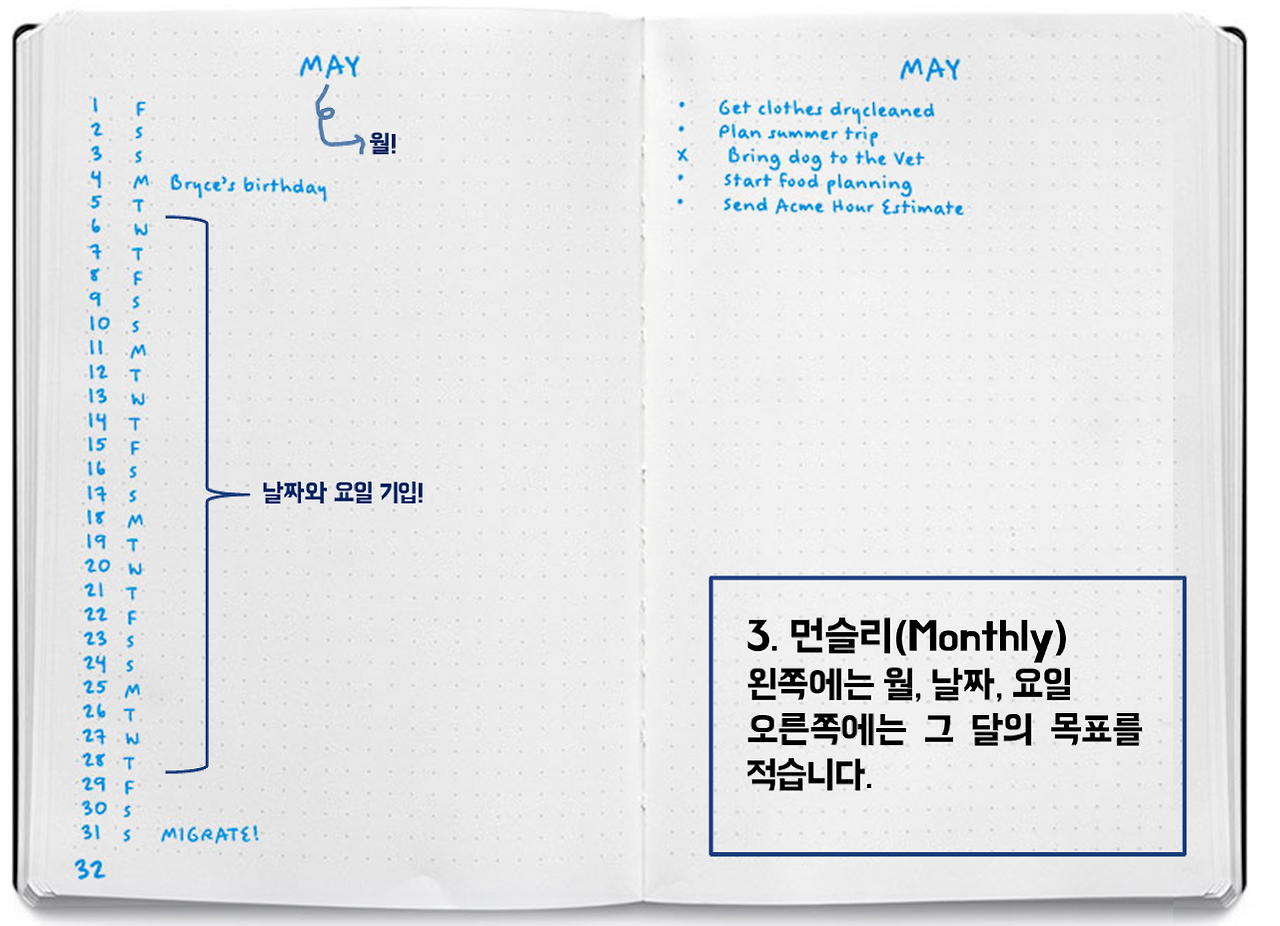 MAY
월!
1 F
2 S
3 S
4 M Bryce's birthday
5 T
6 W
7 T
8 F
9 S
10 S
11 M
12 T
13 W
14 T
15 F
16 S
17 S
날짜와 요일 기입!
18 M
19 T
20 W
21 T
22 F
23 S
24 S
25 M
26 T
27 W
28 T
29 F
30 S
31 S MIGRATE!
32
MAY
• Get clothes drycleaned
• Plan summer trip
x Bring dog to the Vet
• Start food planning
• Send Acme Hour Estimate
3. 먼슬리(Monthly)
왼쪽에는 월, 날짜, 요일
오른쪽에는 그 달의 목표를
적습니다.